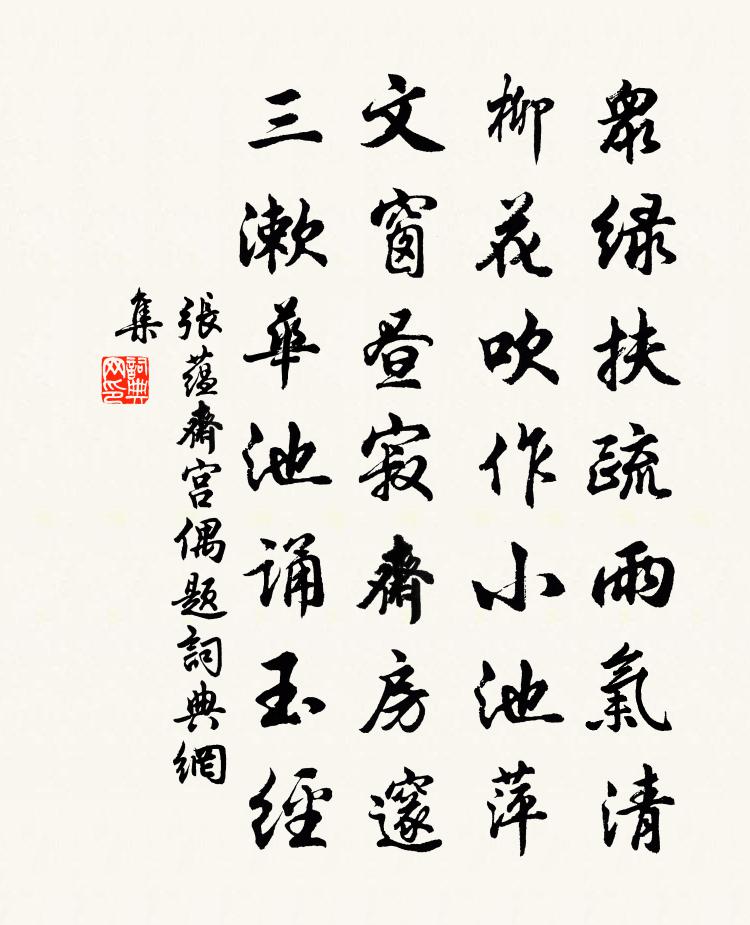 眾綠扶疏雨氣清
柳花吹作小池萍
文窗晝寂齋房邃
三漱華池誦玉經
張蘊齋宮偶題詞典網
集
詞典
網印